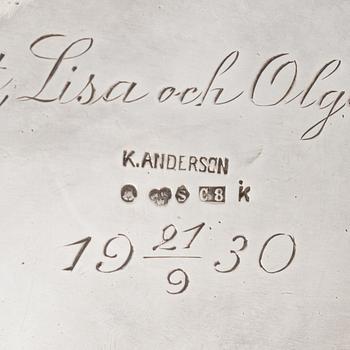 Lisa och Olg
K.ANDERSON
S C8 K
19 21/9 30